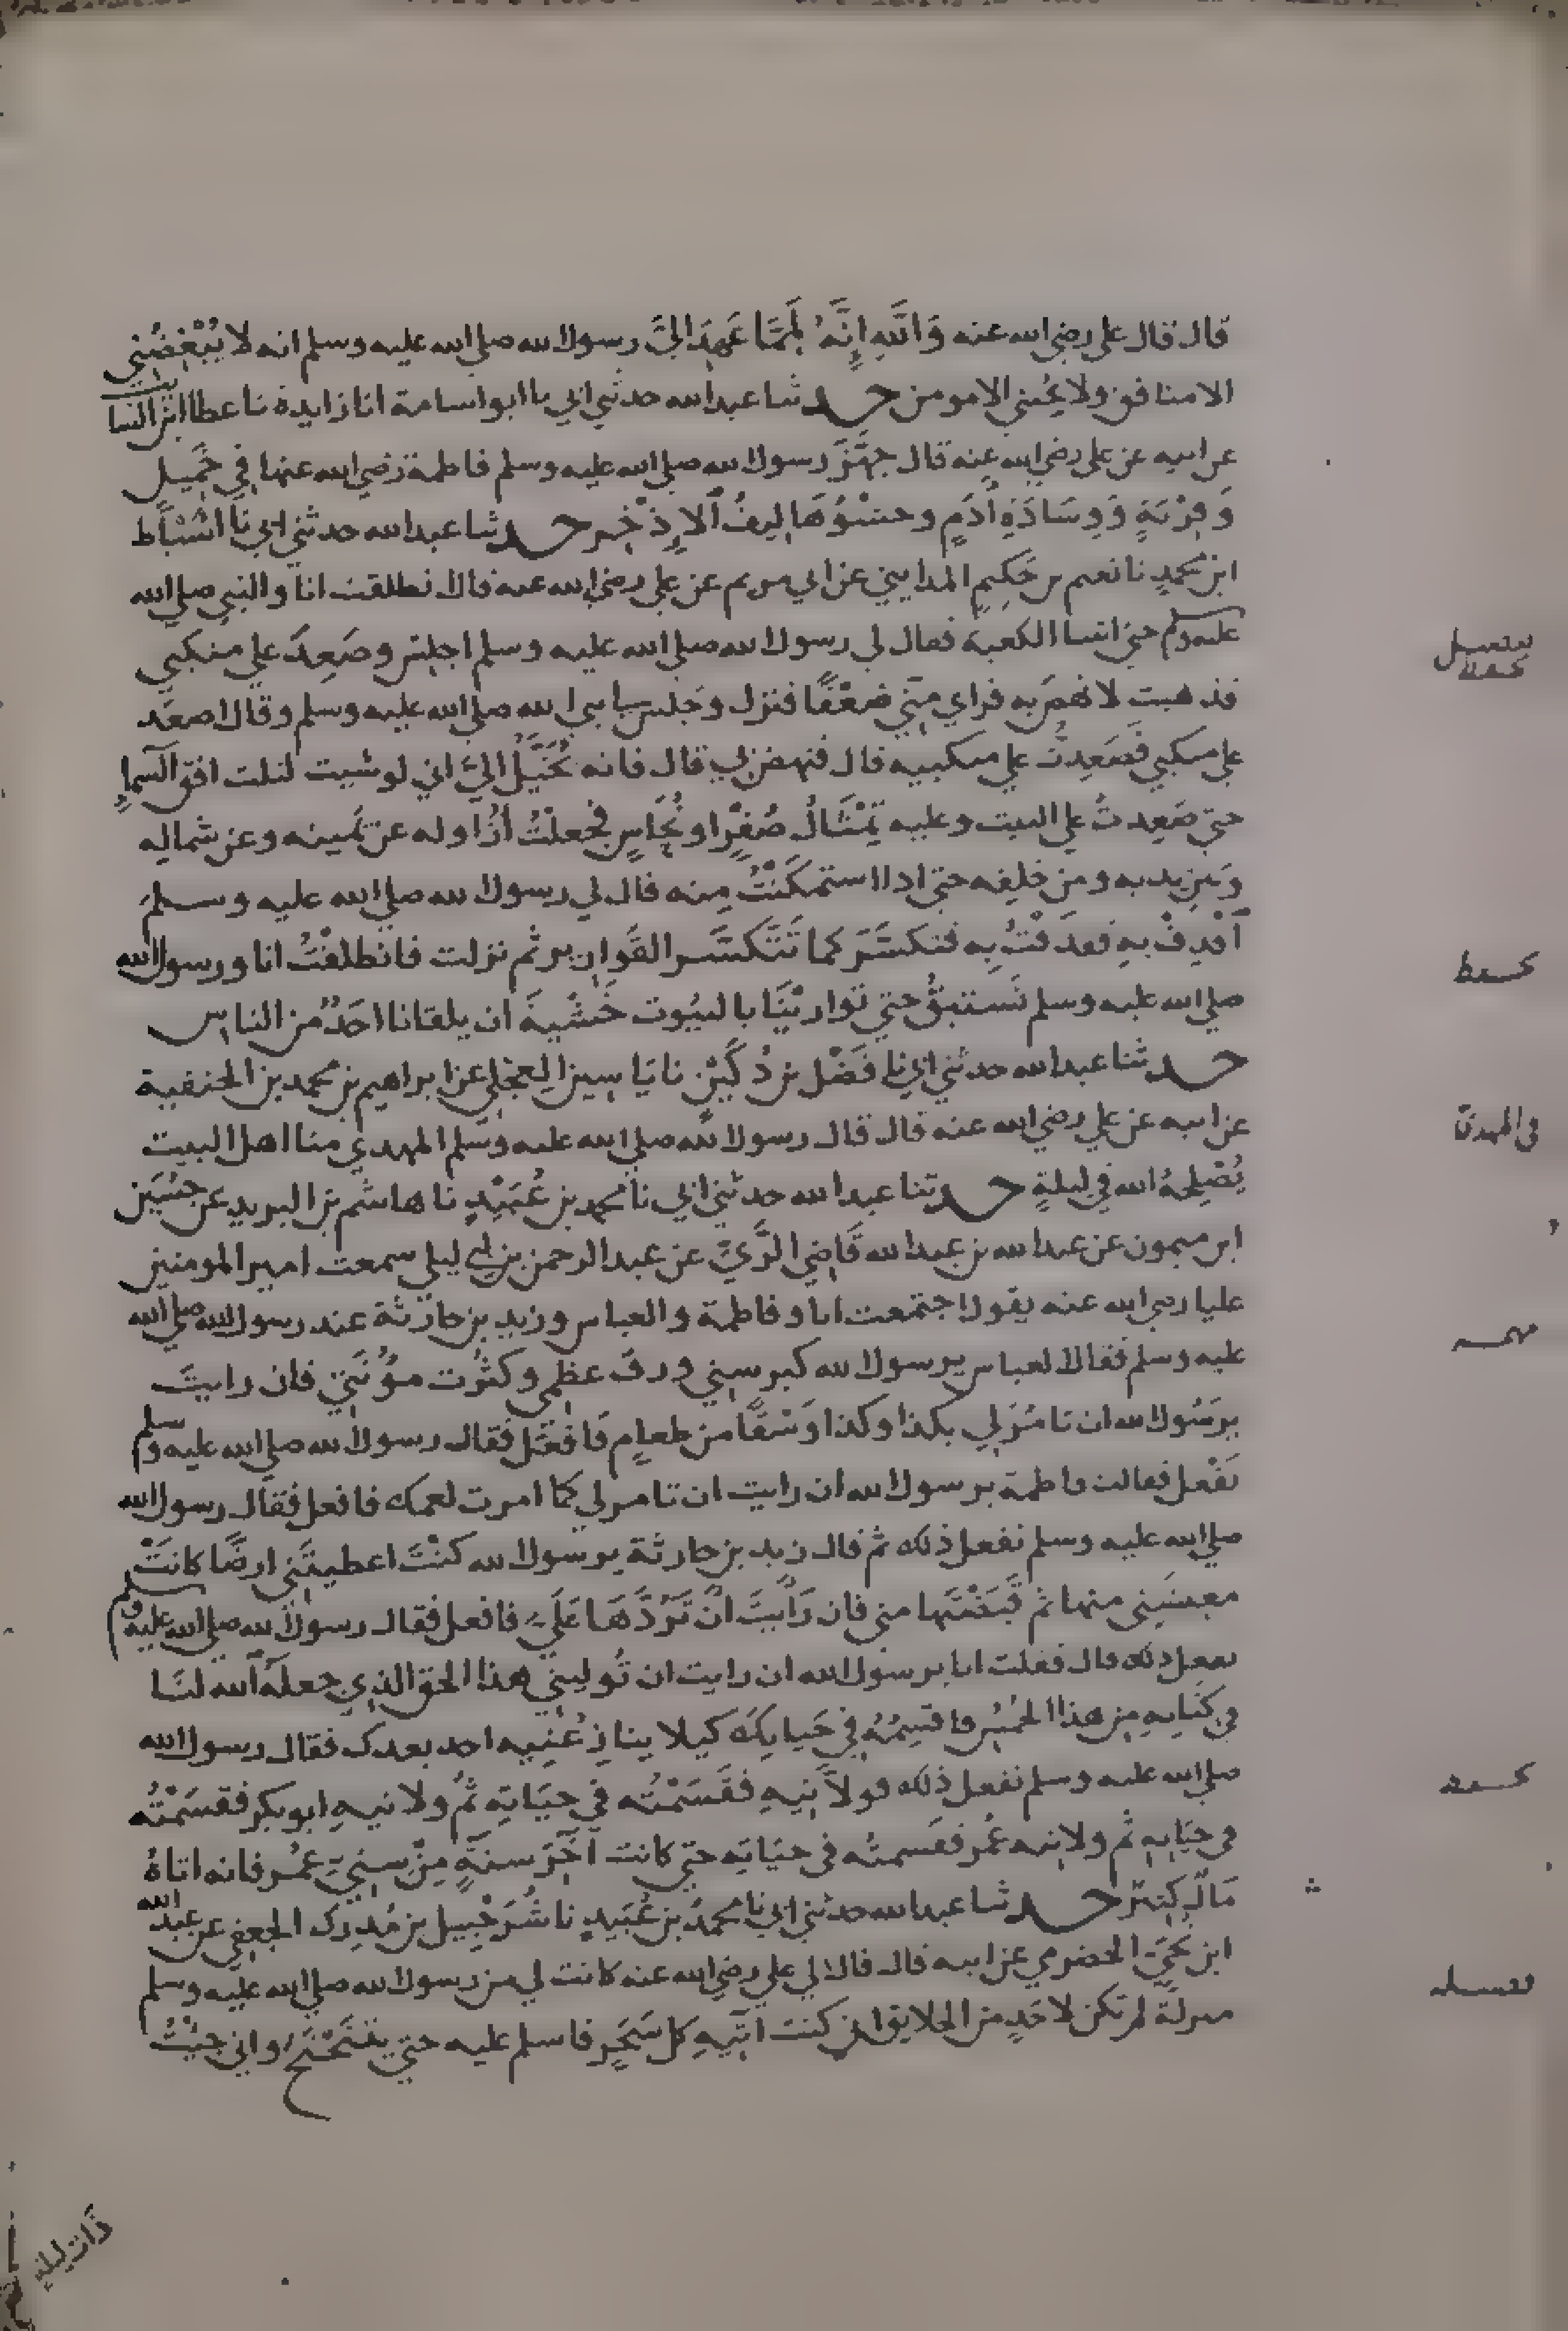 قال قال علي رضي الله عنه وَاللَّهِ إِنَّهُ لَمِمَّا عَهِدَ إِلَيَّ رسول الله صلى الله عليه وسلم انه لا يُبْغِضُني
الا منافق ولا يحبني الا مومن حدثنا عبد الله حدثني ابي نا ابو اسامة انا زايدة نا عطا ابن السا
عن ابيه عن علي رضي الله عنه قال جَهَّزَ رسول الله صلى الله عليه وسلم فاطمة رضي الله عنها في خَمِيل
وَقِرْبَةٍ وَوِسَادَةِ أَدَمٍ وحشْوُهَا لِيفُ الإِذْخِر حدثنا عبد الله حدثني ابي نا اسْبَاط
ابن محمدٍ نا نعيم بن حَكِيمٍ المدايني عن ابي مريم عن علي رضي الله عنه قال انطلقت انا والنبي صلى الله
عليه وسلم حتى اتينا الكعبة فقال لي رسول الله صلى الله عليه وسلم اجلس وصَعِدَ علي منكبي
فذهبت لانهضَ به فراي مِنّي ضعْفًا فنزل وجَلس لي نبي الله صلى الله عليه وسلم وقال اصعَد
علي منكبي فَصَعِدتُ علي منكبيه قال فنهض بي قال فانه يُخَيَّلُ اليَّ اني لو شيت لنلت افق السماءِ
حتى صَعِدتُ علي البيت وعليه تِمْثَالُ صُفْرٍ او نُحَاسٍ فجعلْتُ أُزَاوله عن يمينه وعن شمالِه
وبَين يديه ومن خلفِه حتى اذا استمكَنْتُ مِنه قال لي رسول الله صلى الله عليه وسلم
اقْذِفْ بِهِ فقذَفْتُ بِه فتكسَّرَ كما تَتَكسَّر القَوارير ثم نزلت فانطلقْتُ انا ورسول الله
صلى الله عليه وسلم نَستبقُ حتى توارَيْنَا بالبيُوت خَشْيةَ ان يلقانا احَدٌ من الناس
حدثنا عبد الله حدثني ابي نا فَضْل بن دُكَيْن نا يَاسِين العِجْلي عن ابراهيم بن محمد بن الحنفية
عن ابيه عن علي رضي الله عنه قال قال رسول الله صلى الله عليه وسلم المهدي منا اهل البيت
يُصْلِحهُ الله في ليلةٍ حدثنا عبد الله حدثني ابي نا محمد بن عُبَيْدٍ نا هاشم بن البريد عن حسَيْن
ابن ميمون عن عبد الله بن عبد الله قَاضِي الرَّيِّ عن عبد الرحمن بن ابي ليلي سمعت امير المومنين
عليا رضي الله عنه يقول اجتمعت انا وفاطمة والعباس وزيد بن حارثة عند رسول الله صلى الله
عليه وسلم فقال العباس يرسول الله كبر سِني ورق عظمي وكثُرت مؤُنَتِي فان رايتَ
يرَسُول الله ان تامُرَ لِي بكذا وكذا وَسْقًا من طعامٍ فَافْعَل فقال رسول الله صلى الله عليه وسلم
نَفْعل فقالت فاطمة يرسول الله ان رايت ان تامر لي كما امرت لعمك فافعل فقال رسول الله
صلى الله عليه وسلم نفعل ذلك ثم قال زيد بن حارثة يرسول الله كنْتَ اعطيتَنِي ارضًا كانَتْ
معيشَتِي منها ثم قَبَضْتَها مني فان رَأَيتَ انْ تَرُدَّهَا عَلَيَّ فافعل فقال رسول الله صلى الله عليه وسلم
نفعل ذلك قال فقلت انا يرسول الله ان رايت ان تُوليَني هذا الحق الذي جعلهُ الله لنَا
في كتابِهِ مِن هذا الخمُس فاقسِمُهُ في حَياتِكَ كيلا ينازِعُنِيه احد بعدك فقال رسول الله
صلى الله عليه وسلم نفعل ذلك فولاَّنِيهِ فقَسَمْتُه في حيَاتِهِ ثمَّ ولانيهِ ابو بكر فقسَمْتُه
في حيَاتِهِ ثم ولانِيه عُمر فقسمتُه في حيَاتِه حتى كانت آخِرَ سنةٍ مِنْ سِنِيِّ عُمر فانه اتاهُ
مَالٌ كثِيرٌ حدثنا عبد الله حدثني ابي نا محمدُ بن عُبَيدٍ نا شُرَحْبِيل بن مُدرِك الجعفي عن عبد الله
ابن نُجَيّ الحضرمي عن ابيه قال قال لي علي رضي الله عنه كانت لي من رسول الله صلى الله عليه وسلم
منزلة لم تكن لاحَدٍ من الخلايق اني كنت اتِيهِ كل سَحَرٍ فاسلم عليه حتى يتَنَحْنَح واني جيتُ
في المهدي
ذات ليلة